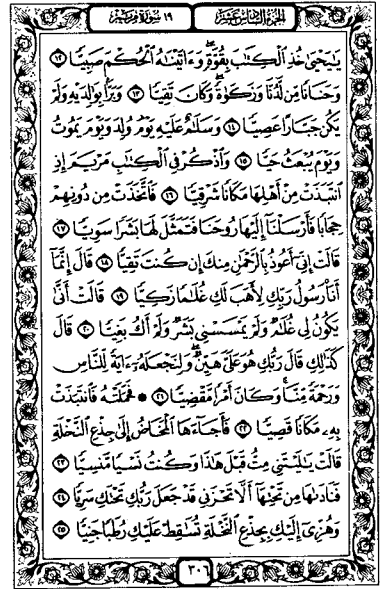 الجزء السادس عشر
١٩ سورة مريم
يَـٰيَحْيَىٰ خُذِ ٱلْكِتَـٰبَ بِقُوَّةٍۖ وَءَاتَيْنَـٰهُ ٱلْحُكْمَ صَبِيًّا ١٢
وَحَنَانًا مِّن لَّدُنَّا وَزَكَوٰةًۖ وَكَانَ تَقِيًّا ١٣ وَبَرًّۢا بِوَٰلِدَيْهِ وَلَمْ
يَكُن جَبَّارًا عَصِيًّا ١٤ وَسَلَـٰمٌ عَلَيْهِ يَوْمَ وُلِدَ وَيَوْمَ يَمُوتُ
وَيَوْمَ يُبْعَثُ حَيًّا ١٥ وَٱذْكُرْ فِى ٱلْكِتَـٰبِ مَرْيَمَ إِذِ
ٱنتَبَذَتْ مِنْ أَهْلِهَا مَكَانًا شَرْقِيًّا ١٦ فَٱتَّخَذَتْ مِن دُونِهِمْ
حِجَابًا فَأَرْسَلْنَآ إِلَيْهَا رُوحَنَا فَتَمَثَّلَ لَهَا بَشَرًا سَوِيًّا ١٧
قَالَتْ إِنِّىٓ أَعُوذُ بِٱلرَّحْمَـٰنِ مِنكَ إِن كُنتَ تَقِيًّا ١٨ قَالَ إِنَّمَآ
أَنَا۠ رَسُولُ رَبِّكِ لِأَهَبَ لَكِ غُلَـٰمًا زَكِيًّا ١٩ قَالَتْ أَنَّىٰ
يَكُونُ لِى غُلَـٰمٌ وَلَمْ يَمْسَسْنِى بَشَرٌ وَلَمْ أَكُ بَغِيًّا ٢٠ قَالَ
كَذَٰلِكِ قَالَ رَبُّكِ هُوَ عَلَىَّ هَيِّنٌۖ وَلِنَجْعَلَهُۥٓ ءَايَةً لِّلنَّاسِ
وَرَحْمَةً مِّنَّاۚ وَكَانَ أَمْرًا مَّقْضِيًّا ٢١ * فَحَمَلَتْهُ فَٱنتَبَذَتْ
بِهِۦ مَكَانًا قَصِيًّا ٢٢ فَأَجَآءَهَا ٱلْمَخَاضُ إِلَىٰ جِذْعِ ٱلنَّخْلَةِ
قَالَتْ يَـٰلَيْتَنِى مِتُّ قَبْلَ هَـٰذَا وَكُنتُ نَسْيًا مَّنسِيًّا ٢٣
فَنَادَىٰهَا مِن تَحْتِهَآ أَلَّا تَحْزَنِى قَدْ جَعَلَ رَبُّكِ تَحْتَكِ سَرِيًّا ٢٤
وَهُزِّىٓ إِلَيْكِ بِجِذْعِ ٱلنَّخْلَةِ تُسَـٰقِطْ عَلَيْكِ رُطَبًا جَنِيًّا ٢٥
٣٠٦